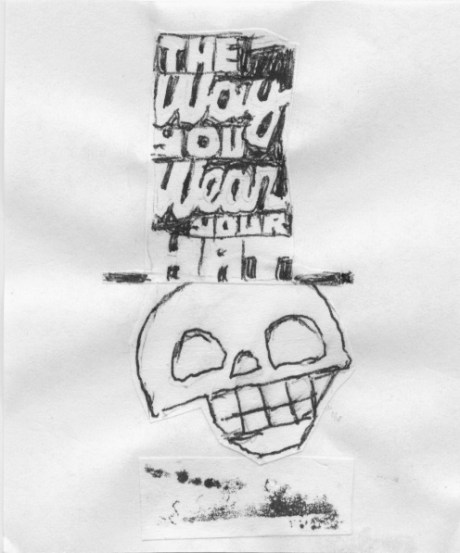 THE
Way
YOU
Wear
YOUR
HAT